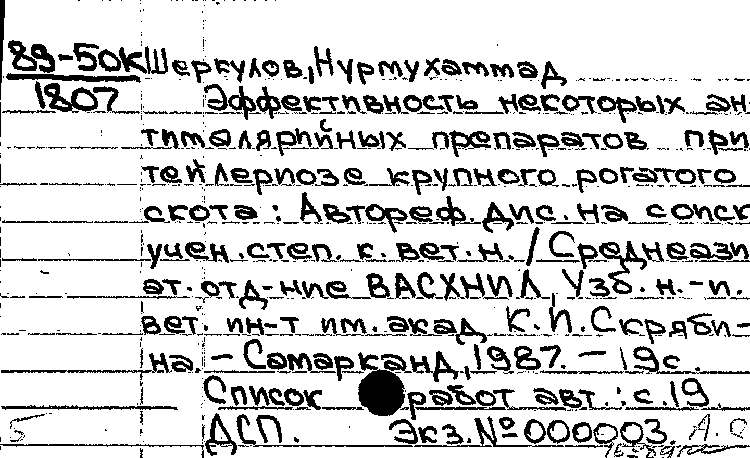 89-50к Шеркулов, Нурмухаммад
1807 Эффективность некоторых ан-
тималярийных препаратов при
тейлериозе крупного рогатого
скота : Автореф. дис. на соиск
учен. степ. к. вет. н. / Среднеази
ат. отд-ние ВАСХНИЛ, Узб. н.-и.
вет. ин-т им. акад К. И. Скряби-
на. – Самарканд, 1987. – 19 с.
Список работ авт. : с. 19.
5 ДСП. Экз. № 000003.